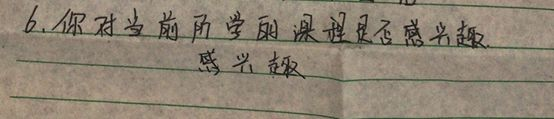 6.你对当前所学的课程是否感兴趣.
感兴趣